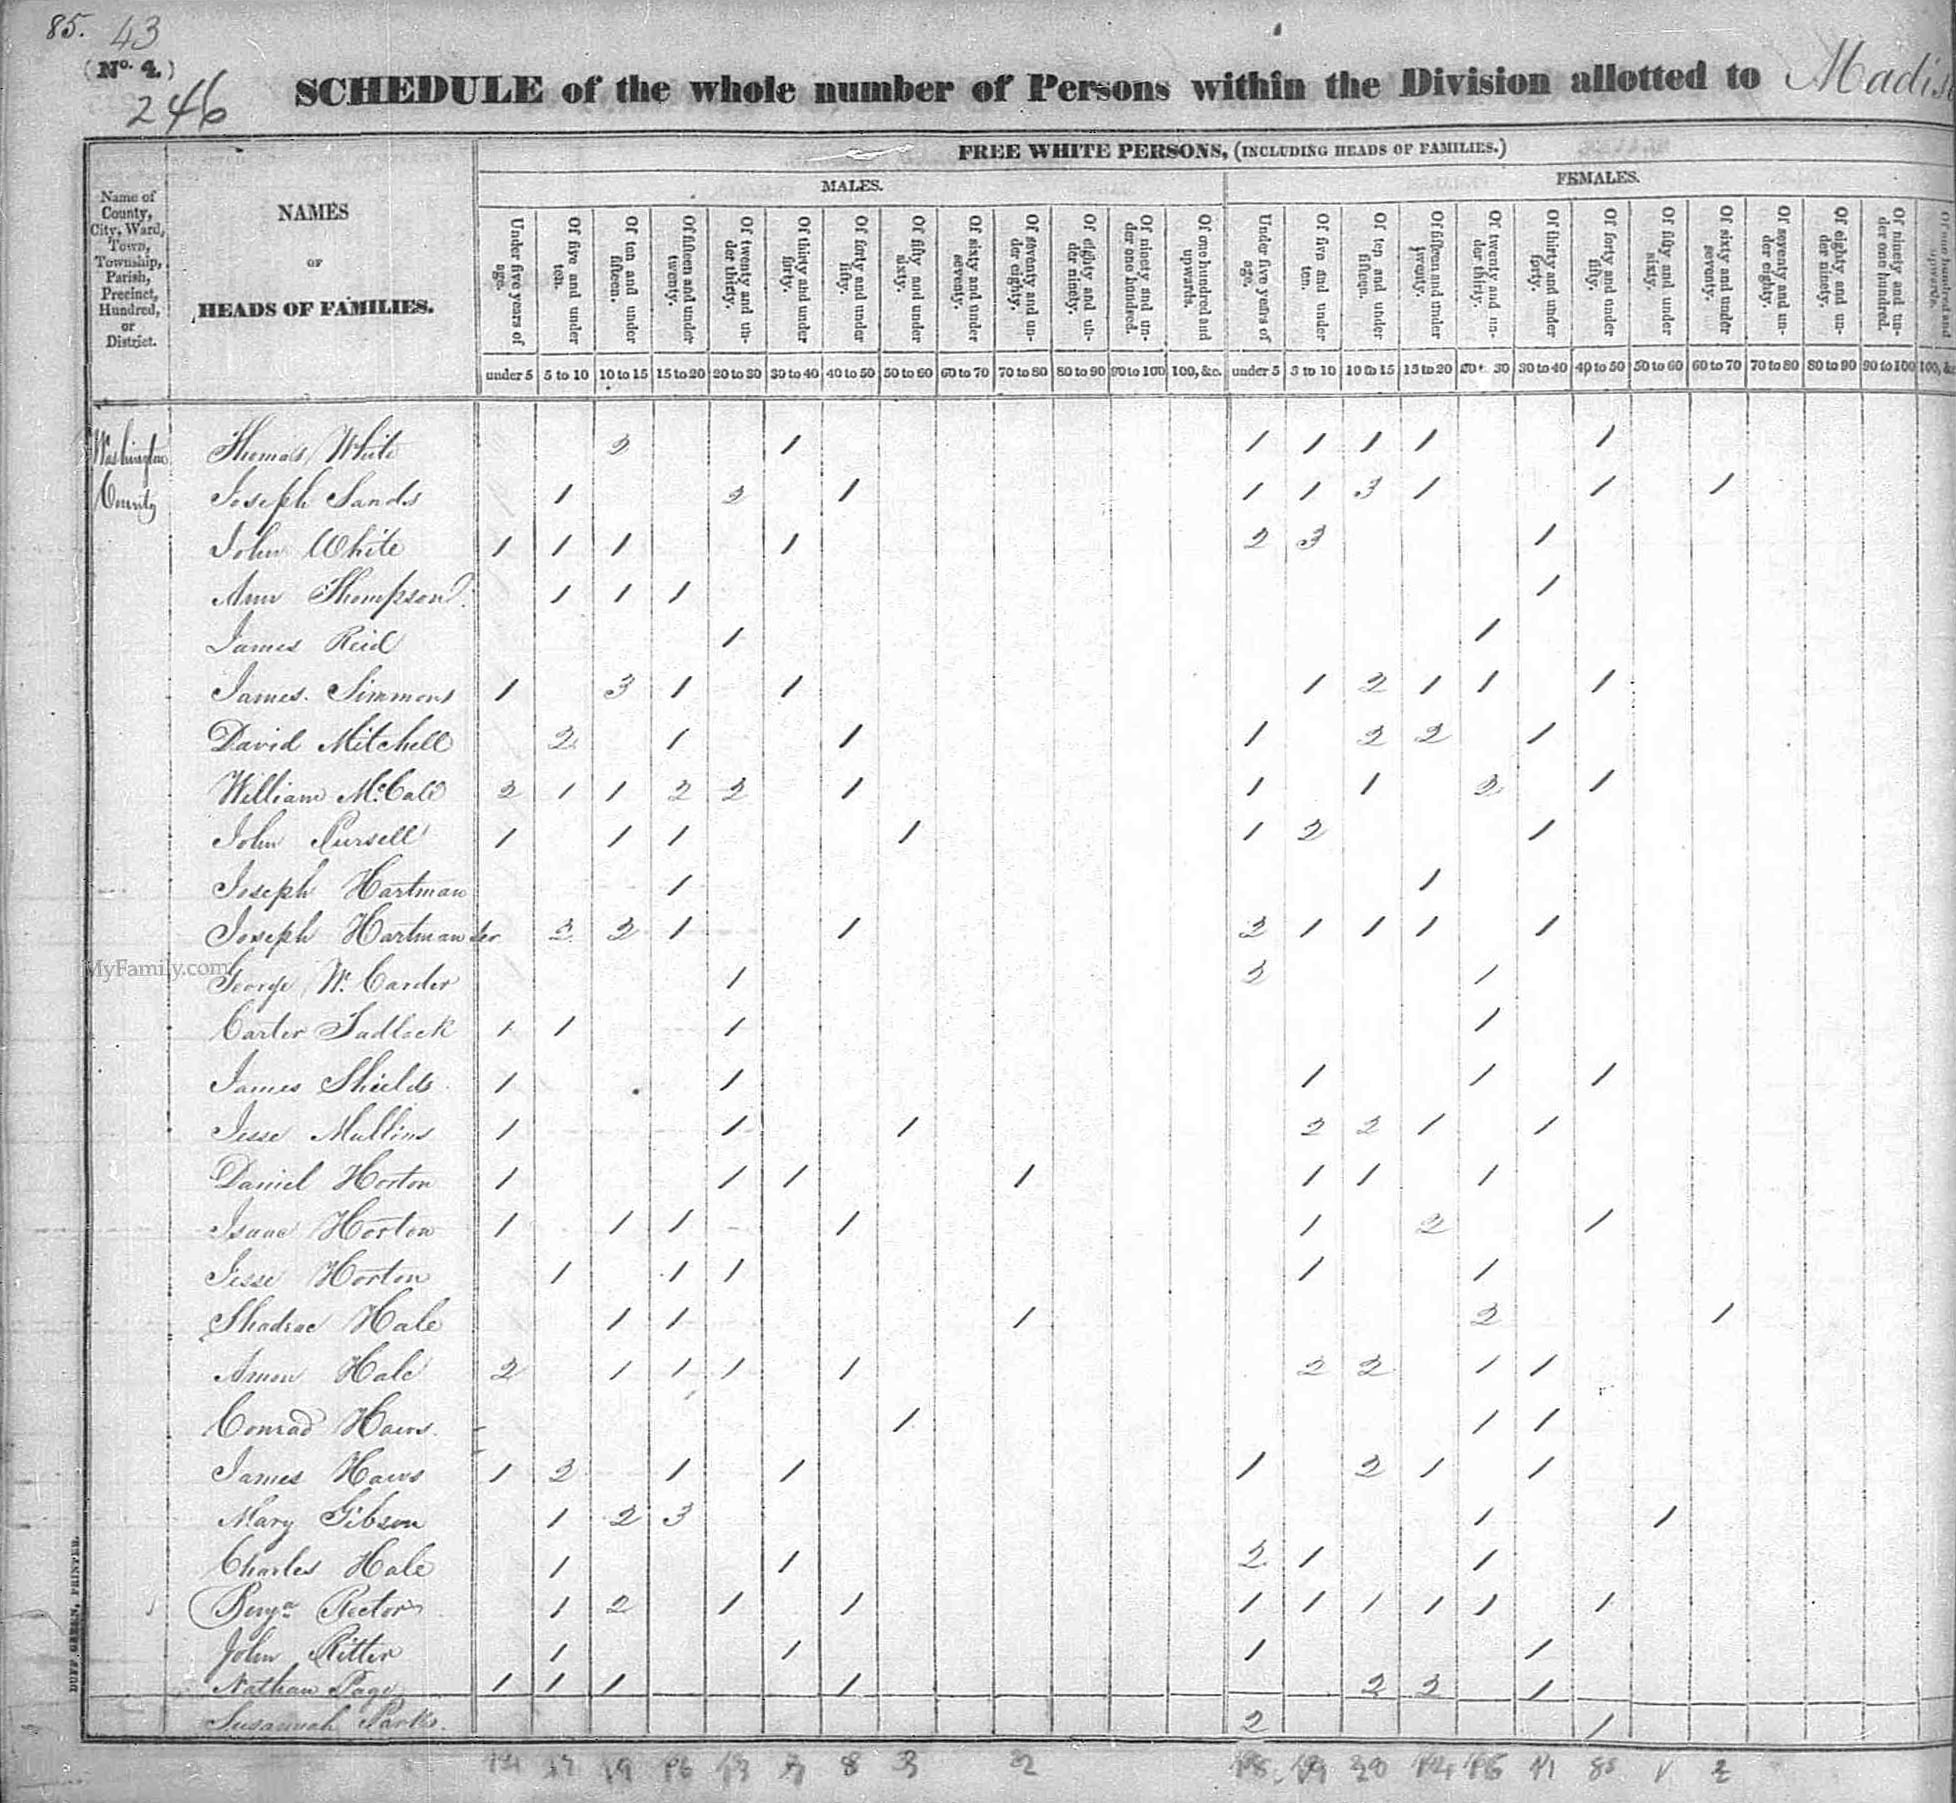 85. 43
(No. 4.)
246
SCHEDULE of the whole number of Persons within the Division allotted to Madis
Name of County, City, Ward, Town, Township, Parish, Precinct, Hundred, or District.
NAMES OF HEADS OF FAMILIES.
FREE WHITE PERSONS, (INCLUDING HEADS OF FAMILIES.)
MALES. FEMALES.
Under five years of age. Of five and under ten. Of ten and under fifteen. Of fifteen and under twenty. Of twenty and under thirty. Of thirty and under forty. Of forty and under fifty. Of fifty and under sixty. Of sixty and under seventy. Of seventy and under eighty. Of eighty and under ninety. Of ninety and under one hundred. Of one hundred and upwards. Under five years of age. Of five and under ten. Of ten and under fifteen. Of fifteen and under twenty. Of twenty and under thirty. Of thirty and under forty. Of forty and under fifty. Of fifty and under sixty. Of sixty and under seventy. Of seventy and under eighty. Of eighty and under ninety. Of ninety and under one hundred. Of one hundred and upwards.
under 5 5 to 10 10 to 15 15 to 20 20 to 30 30 to 40 40 to 50 50 to 60 60 to 70 70 to 80 80 to 90 90 to 100 100, &c. under 5 5 to 10 10 to 15 15 to 20 20 to 30 30 to 40 40 to 50 50 to 60 60 to 70 70 to 80 80 to 90 90 to 100 100, &c
Washington Thomas White 2 1 1 1 1 1 1
County Joseph Sands 1 2 1 1 1 3 1 1 1
John White 1 1 1 1 2 3 1
Ann Thompson 1 1 1 1
James Reid 1 1
James Simmons 1 3 1 1 1 2 1 1 1
David Mitchell 2 1 1 1 2 2 1
William McCall 2 1 1 2 2 1 1 1 2 1
John Pursell 1 1 1 1 1 2 1
Joseph Hartman 1 1
Joseph Hartman 2 2 1 1 2 1 1 1 1
George W. Carder 1 2 1
Carter Sadlock 1 1 1 1
James Shields 1 1 1 1 1
Jesse Mullins 1 1 1 2 2 1 1
Daniel Horton 1 1 1 1 1 1 1
Isaac Horton 1 1 1 1 1 2 1
Jesse Horton 1 1 1 1 1
Shadrac Hale 1 1 1 2 1
Amon Hale 2 1 1 1 1 2 2 1 1
Conrad Haws 1 1 1
James Haws 1 2 1 1 1 2 1 1
Mary Gibson 1 2 3 1 1
Charles Hale 1 1 2 1 1
Benja Rector 1 2 1 1 1 1 1 1 1 1
John Ritter 1 1 1 1
Nathan Page 1 1 1 1 2 2 1
Susannah Parks 2 1
8 3 2 20 11
DUFF GREEN, PRINTER.
MyFamily.com